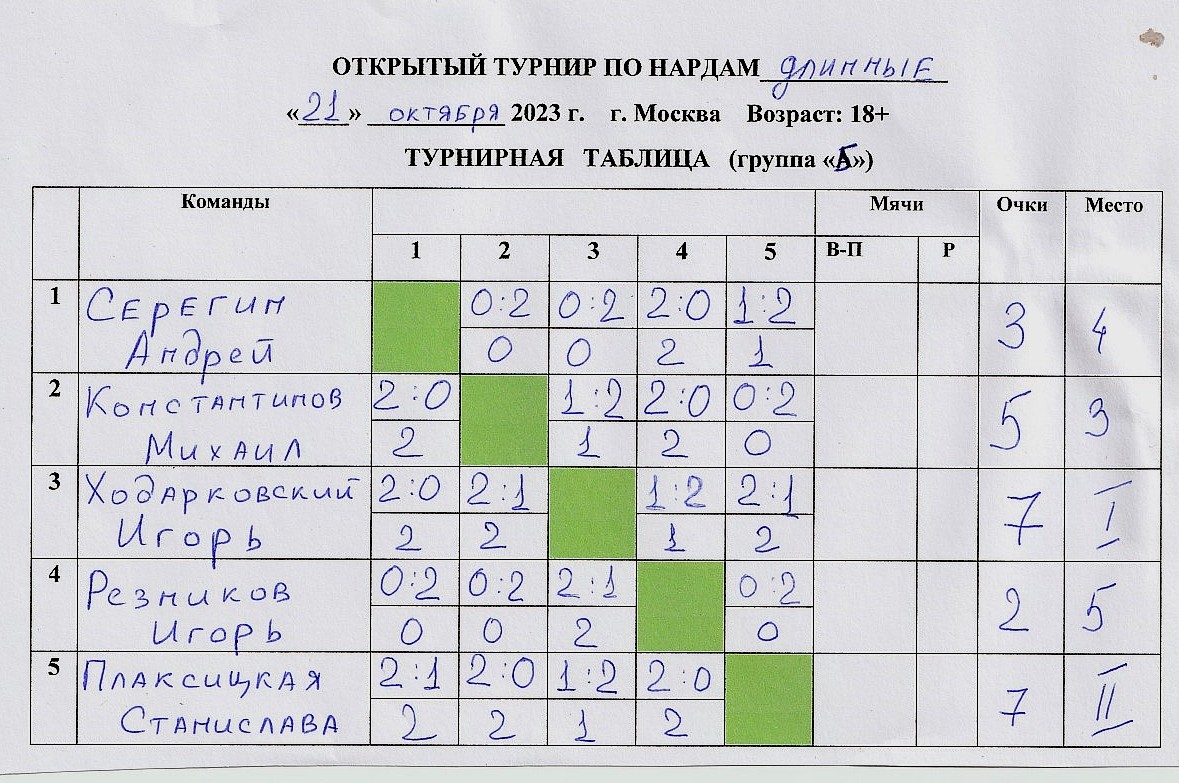 ОТКРЫТЫЙ ТУРНИР ПО НАРДАМ длинные
«21» октября 2023 г. г. Москва Возраст: 18+
ТУРНИРНАЯ ТАБЛИЦА (группа «Б»)
Команды Мячи Очки Место
1 2 3 4 5 В-П Р
1 Серегин 0:2 0:2 2:0 1:2 3 4
Андрей 0 0 2 1
2 Константинов 2:0 1:2 2:0 0:2 5 3
Михаил 2 1 2 0
3 Ходарковский 2:0 2:1 1:2 2:1 7 I
Игорь 2 2 1 2
4 Резников 0:2 0:2 2:1 0:2 2 5
Игорь 0 0 2 0
5 Плаксицкая 2:1 2:0 1:2 2:0 7 II
Станислава 2 2 1 2